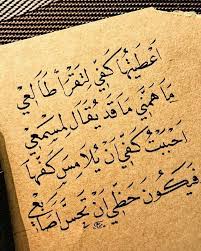 أعطيتها كفي لتقرأ طالعي
ما همني ما قد يقال لمسمعي
أحببت كفي أن يلامس كفها
فيكون حظي أن تحس أصابعي